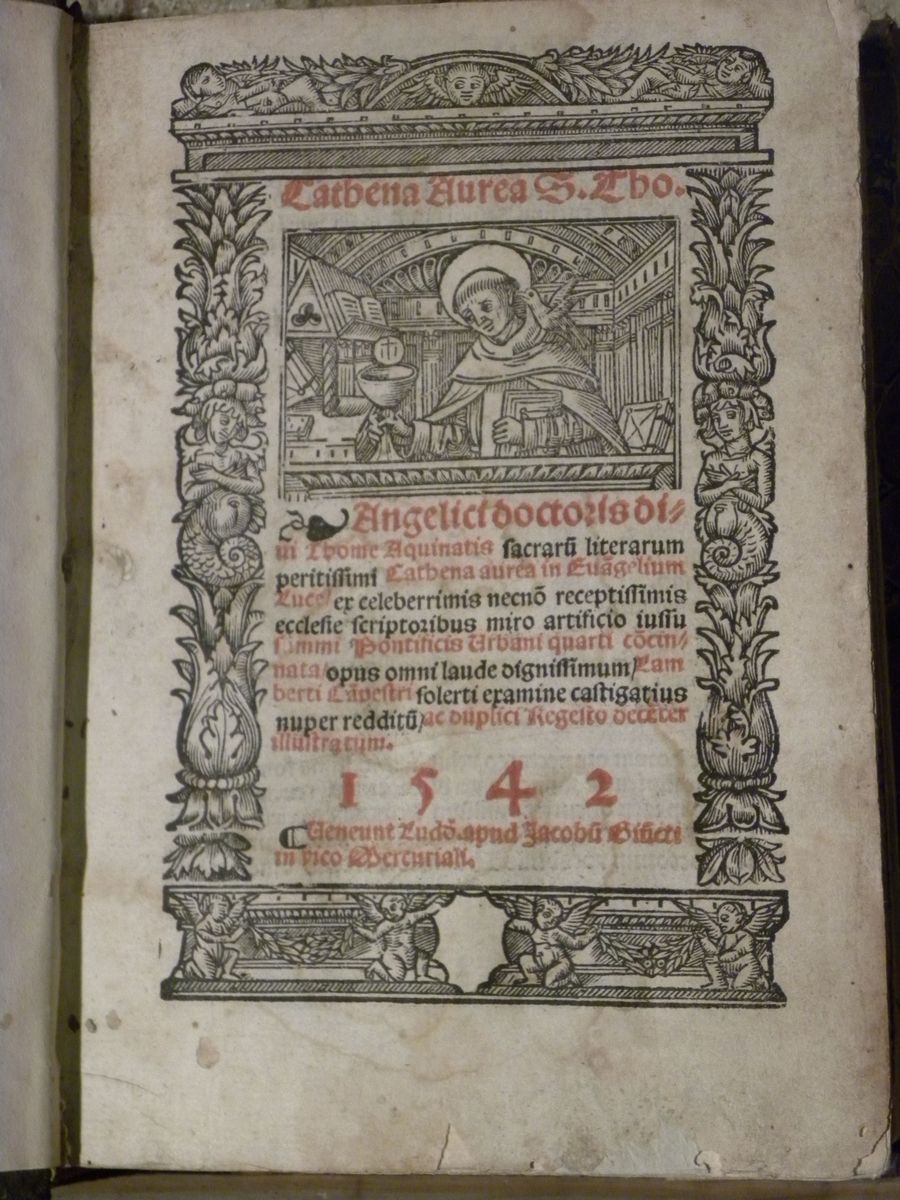 Cathena Aurea S. Tho.
Angelici doctoris di-
ui Thome Aquinatis sacrarū literarum
peritissimi Cathena aurea in Euāgelium
Luce/ ex celeberrimis necnō receptissimis
ecclesie scriptoribus miro artificio iussu
summi Pontificis Urbani quarti cōcin-
nata/ opus omni laude dignissimum/ Lam
berti Cāpestri solerti examine castigatius
nuper redditū/ ac duplici Regesto decēter
illustratum.
1542
Ueneunt Ludō. apud Jacobū Giūcti
in vico Mercuriali.